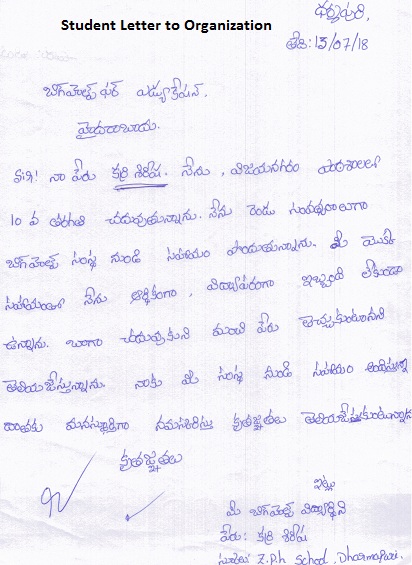 Student Letter to Organization
ధర్మపురి,
తేది: 13/07/18
బిగ్‌హెల్ప్ ఫర్ ఎడ్యుకేషన్.
హైదరాబాదు.
సార్! నా పేరు కర్రి శిరీష. నేను, విజయనగరం పాఠశాలలో
10 వ తరగతి చదువుతున్నాను. నేను రెండు సంవత్సరాలుగా
బిగ్‌హెల్ప్ సంస్థ నుండి సహాయం పొందుతున్నాను. మీ యొక్క
సహాయంతో నేను ఆర్థికంగా, విద్యాపరంగా ఇబ్బంది లేకుండా
ఉన్నాను. బాగా చదువుకుని మంచి పేరు తెచ్చుకుంటానని
తెలియజేస్తున్నాను. నాకు మీ సంస్థ నుండి సహాయం అందిస్తున్న
దాతకు మనస్ఫూర్తిగా నమస్కరిస్తు కృతజ్ఞతలు తెలియజేసుకుంటున్నాను
కృతజ్ఞతలు
ఇట్లు
మీ బిగ్‌హెల్ప్ విద్యార్థిని
పేరు: కర్రి శిరీష
స్కూలు: Z.P.h School, Dharmapuri.